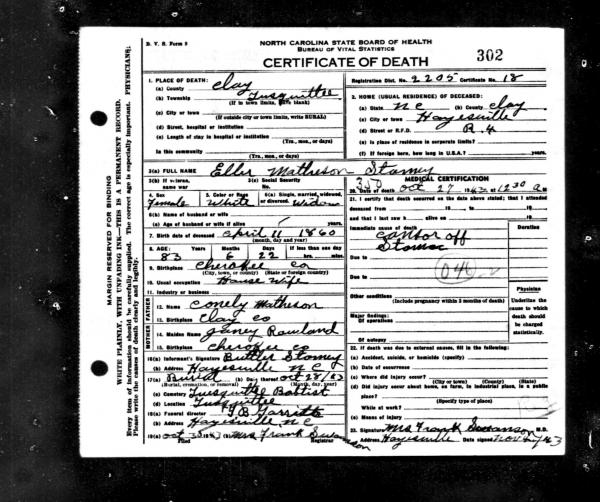 D. V. S. Form 8
NORTH CAROLINA STATE BOARD OF HEALTH
BUREAU OF VITAL STATISTICS
CERTIFICATE OF DEATH
302
Registration Dist. No. 2205 Certificate No. 18
1. PLACE OF DEATH:
(a) County Clay
(b) Township Tusquittee
(If in town limits, leave blank)
(c) City or town
(If outside city or town limits, write RURAL)
(d) Street, hospital or institution
(e) Length of stay in hospital or institution
(Yrs., mos., or days)
In this community
(Yrs., mos., or days)
2. HOME (USUAL RESIDENCE) OF DECEASED:
(a) State NC (b) County Clay
(c) City or town Hayesville
(d) Street or R.F.D. R. 4
(e) In place of residence in corporate limits?
(f) If foreign born, how long in U.S.A.? years.
3(a) FULL NAME Eller Matheson Stamey
3(b) If veteran, name war
3(c) Social Security No.
4. Sex Female
5. Color or Race White
6(a) Single, married, widowed, or divorced. Widow
6(b) Name of husband or wife
6(c) Age of husband or wife if alive
7. Birth date of deceased April 11 1860
(month, day and year)
8. AGE: Years 83 Months 6 Days 22 If less than one day hrs. min.
9. Birthplace Cherokee Co
(City, town, or county) (State or foreign country)
10. Usual occupation House Wife
11. Industry or business
FATHER
12. Name Conely Matheson
13. Birthplace Clay Co
MOTHER
14. Maiden Name Janey Rowland
15. Birthplace Cherokee Co
16(a) Informant's Signature Buttler Stamey
(b) Address Hayesville N C
17(a) Burial (b) Date thereof Oct 28/43
(Burial, cremation, or removal) (Month, day, year)
(c) Cemetery Tusquittee Baptist
(d) Location Tusquittee
18(a) Funeral director
(b) Address Hayesville N.C
19(a) Oct 30 1943 (b) Mrs Frank Swanson
Filed Registrar
MEDICAL CERTIFICATION
20. Date of death Oct 27 1943 at 12:30 a m
21. I certify that death occurred on the date above stated; that I attended
deceased from 19 to 19
and that I last saw h alive on 19
Duration
Immediate cause of death Cansor off
Stomac
Due to
Due to
046
Other conditions
(Include pregnancy within 3 months of death)
Major findings:
Of operations
Of autopsy
Physician
Underline the cause to which death should be charged statistically.
22. If death was due to external causes, fill in the following:
(a) Accident, suicide, or homicide (specify)
(b) Date of occurrence
(c) Where did injury occur?
(City or town) (County) (State)
(d) Did injury occur about home, on farm, in industrial place, in a public
place?
(Specify type of place)
While at work?
(e) Means of injury
23. Signature Mrs Frank Swanson M.D.
Address Hayesville Date signed Nov 4/43
MARGIN RESERVED FOR BINDING
WRITE PLAINLY, WITH UNFADING INK—THIS IS A PERMANENT RECORD.
Every item of information should be carefully supplied. The correct age is especially important. PHYSICIANS:
Please write the causes of death clearly and legibly.